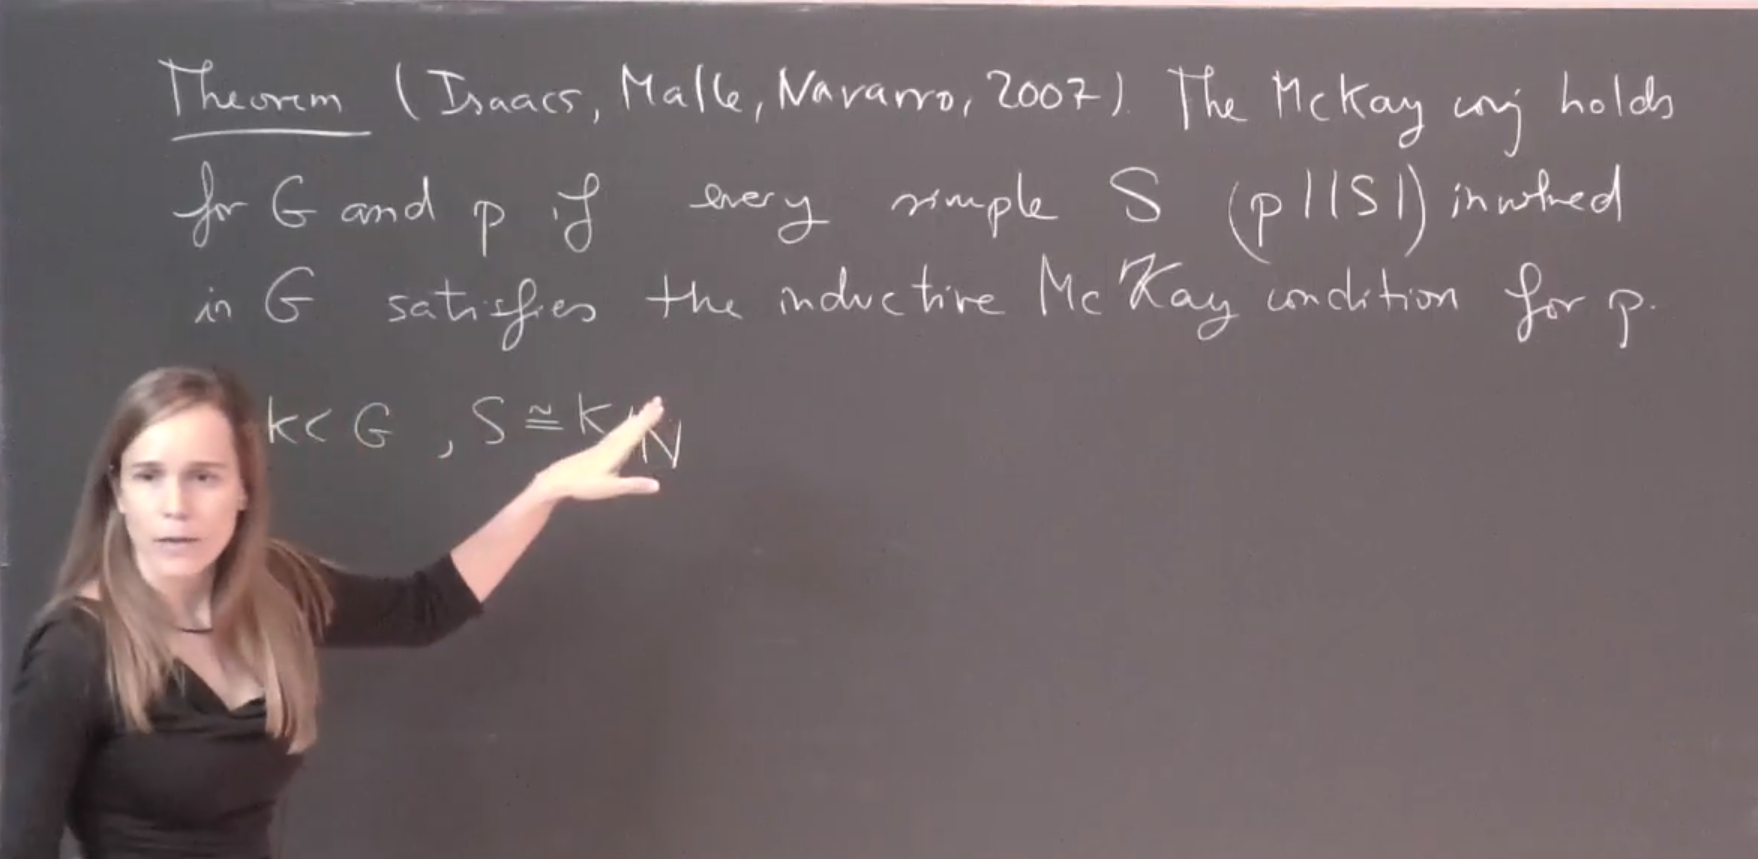 Theorem (Isaacs, Malle, Navarro, 2007). The McKay conj holds
for G and p if every simple S (p||S|) involved
in G satisfies the inductive McKay condition for p.
K < G , S ≅ K/N